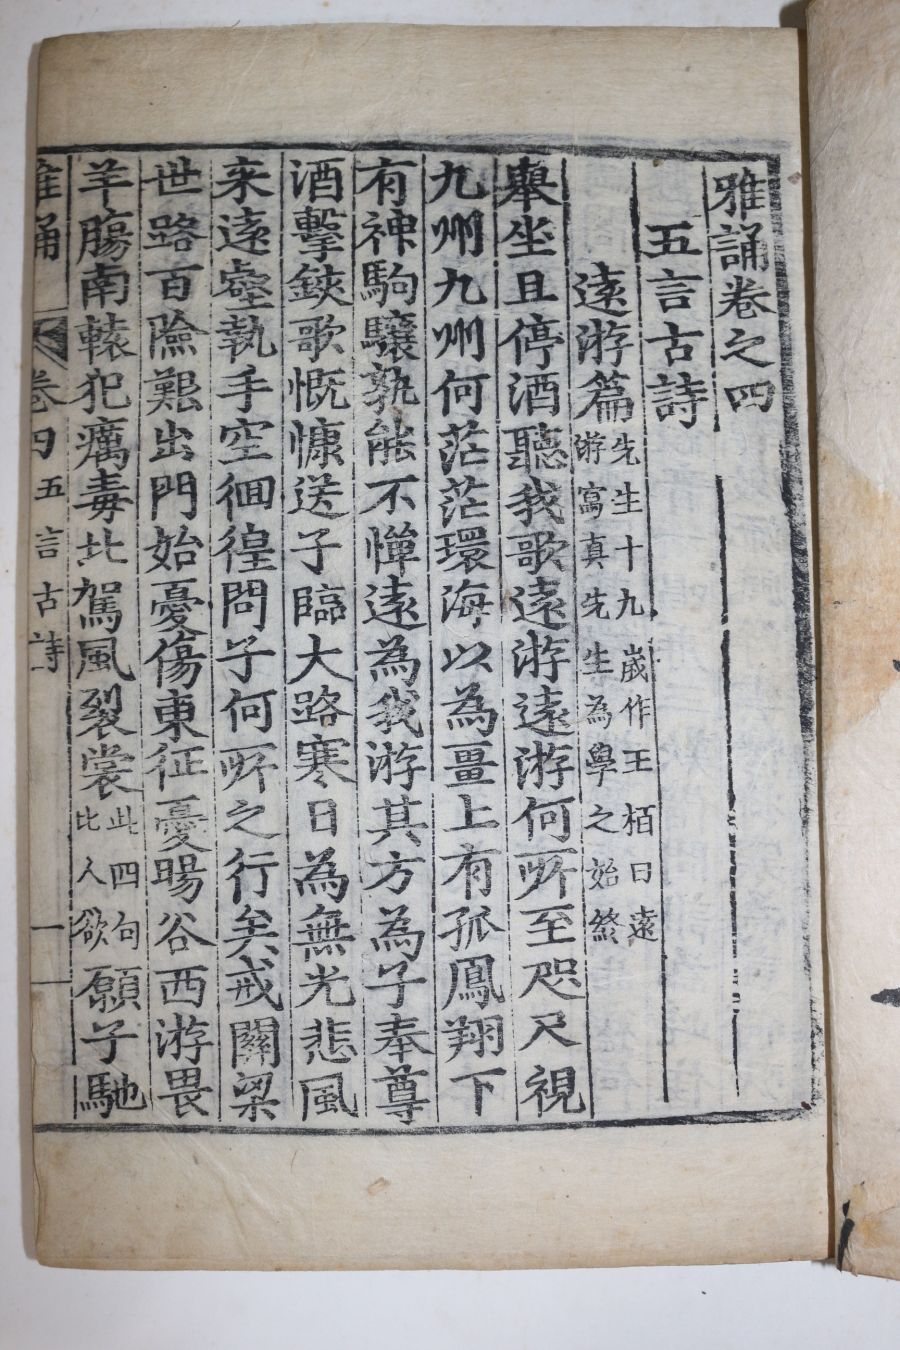 雅誦卷之四
五言古詩
遠游篇 先生十九歲作王栢曰遠
游寫真先生為學之始終
舉坐且停酒聽我歌遠游遠游何所至咫尺視
九州九州何茫茫環海以為畺上有孤鳳翔下
有神駒驤孰能不憚遠為我游其方為子奉尊
酒擊鋏歌慨慷送子臨大路寒日為無光悲風
来遠壑執手空徊徨問子何所之行矣戒關梁
世路百險艱出門始憂傷東征憂暘谷西游畏
羊腸南轅犯癘毒北駕風裂裳 此四句
比人欲 願子馳
雅誦 卷四 五言古詩 一